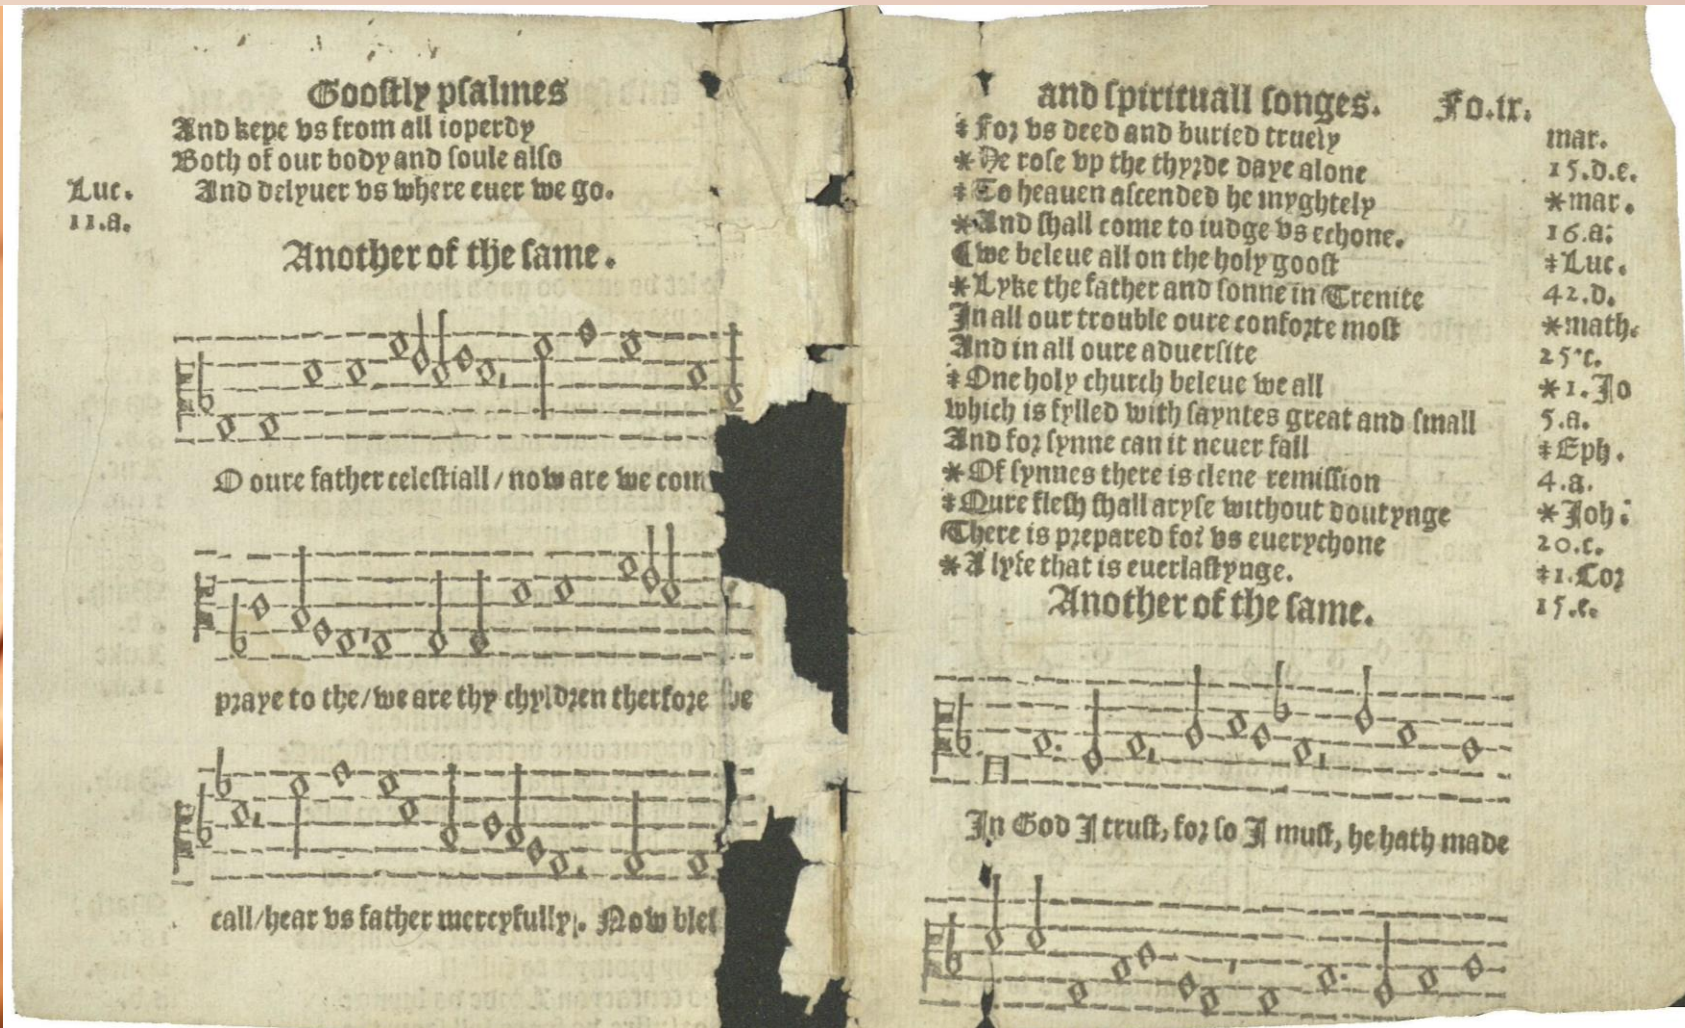 Goostly psalmes
And kepe vs from all ioperdy
Both of our body and soule also
Luc. And delyuer vs where euer we go.
11.a.
Another of the same.
O oure father celestiall / now are we com
praye to the/we are thy chyldren therfore we
call/hear vs father mercyfully. Now bles
and spirituall songes. Fo.ix.
‡ For vs deed and buried truely mar.
*He rose vp the thyrde daye alone 15.d.e.
‡ To heauen ascended he myghtely *mar.
*And shall come to iudge vs echone. 16.a.
¶we beleue all on the holy goost ‡Luc.
*Lyke the father and sonne in Trenite 42.d.
In all our trouble oure conforte most *math.
And in all oure aduersite 25.c.
‡ One holy church beleue we all *1.Jo
which is fylled with sayntes great and small 5.a.
And for synne can it neuer fall ‡Eph.
*Of synnes there is clene remission 4.a.
‡ Oure flesh shall aryse without doutynge *Joh:
There is prepared for vs euerychone 20.c.
*A lyfe that is euerlastynge. ‡1.Cor
Another of the same. 15.e.
In God I trust, for so I must, he hath made